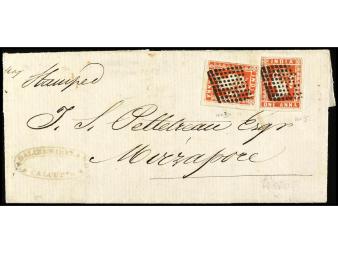 Stamped
INDIA
ONE ANNA
T. S. Pelletreau Esqr
Mirzapore
CALCUTTA